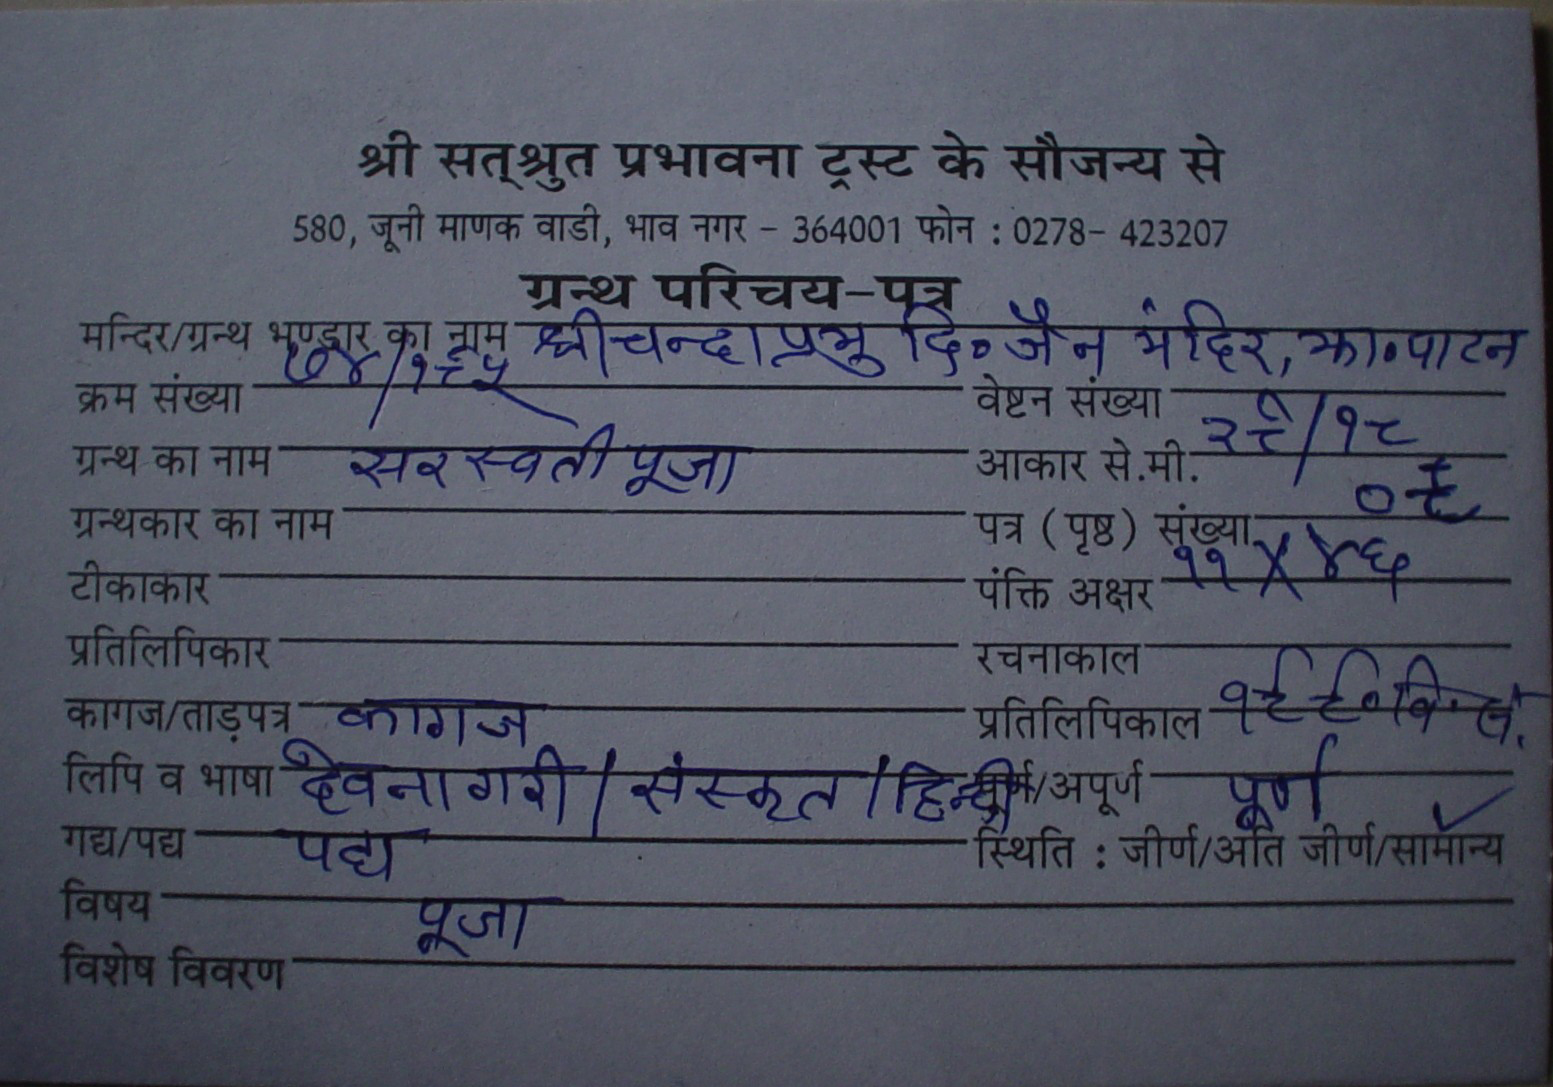 श्री सत्‌श्रुत प्रभावना ट्रस्ट के सौजन्य से
580, जूनी माणक वाडी, भाव नगर - 364001 फोन : 0278- 423207
ग्रन्थ परिचय-पत्र
मन्दिर/ग्रन्थ भण्डार का नाम श्री चन्दाप्रभु दि॰ जैन मंदिर, झा॰पाटन
क्रम संख्या वेष्टन संख्या
ग्रन्थ का नाम सरस्वती पूजा आकार से.मी.
ग्रन्थकार का नाम पत्र (पृष्ठ) संख्या
टीकाकार पंक्ति अक्षर ११ X ४६
प्रतिलिपिकार रचनाकाल
कागज/ताड़पत्र कागज प्रतिलिपिकाल वि. सं.
लिपि व भाषा देवनागरी / संस्कृत / हिन्दी पूर्ण/अपूर्ण पूर्ण
गद्य/पद्य पद्य स्थिति : जीर्ण/अति जीर्ण/सामान्य ✓
विषय पूजा
विशेष विवरण